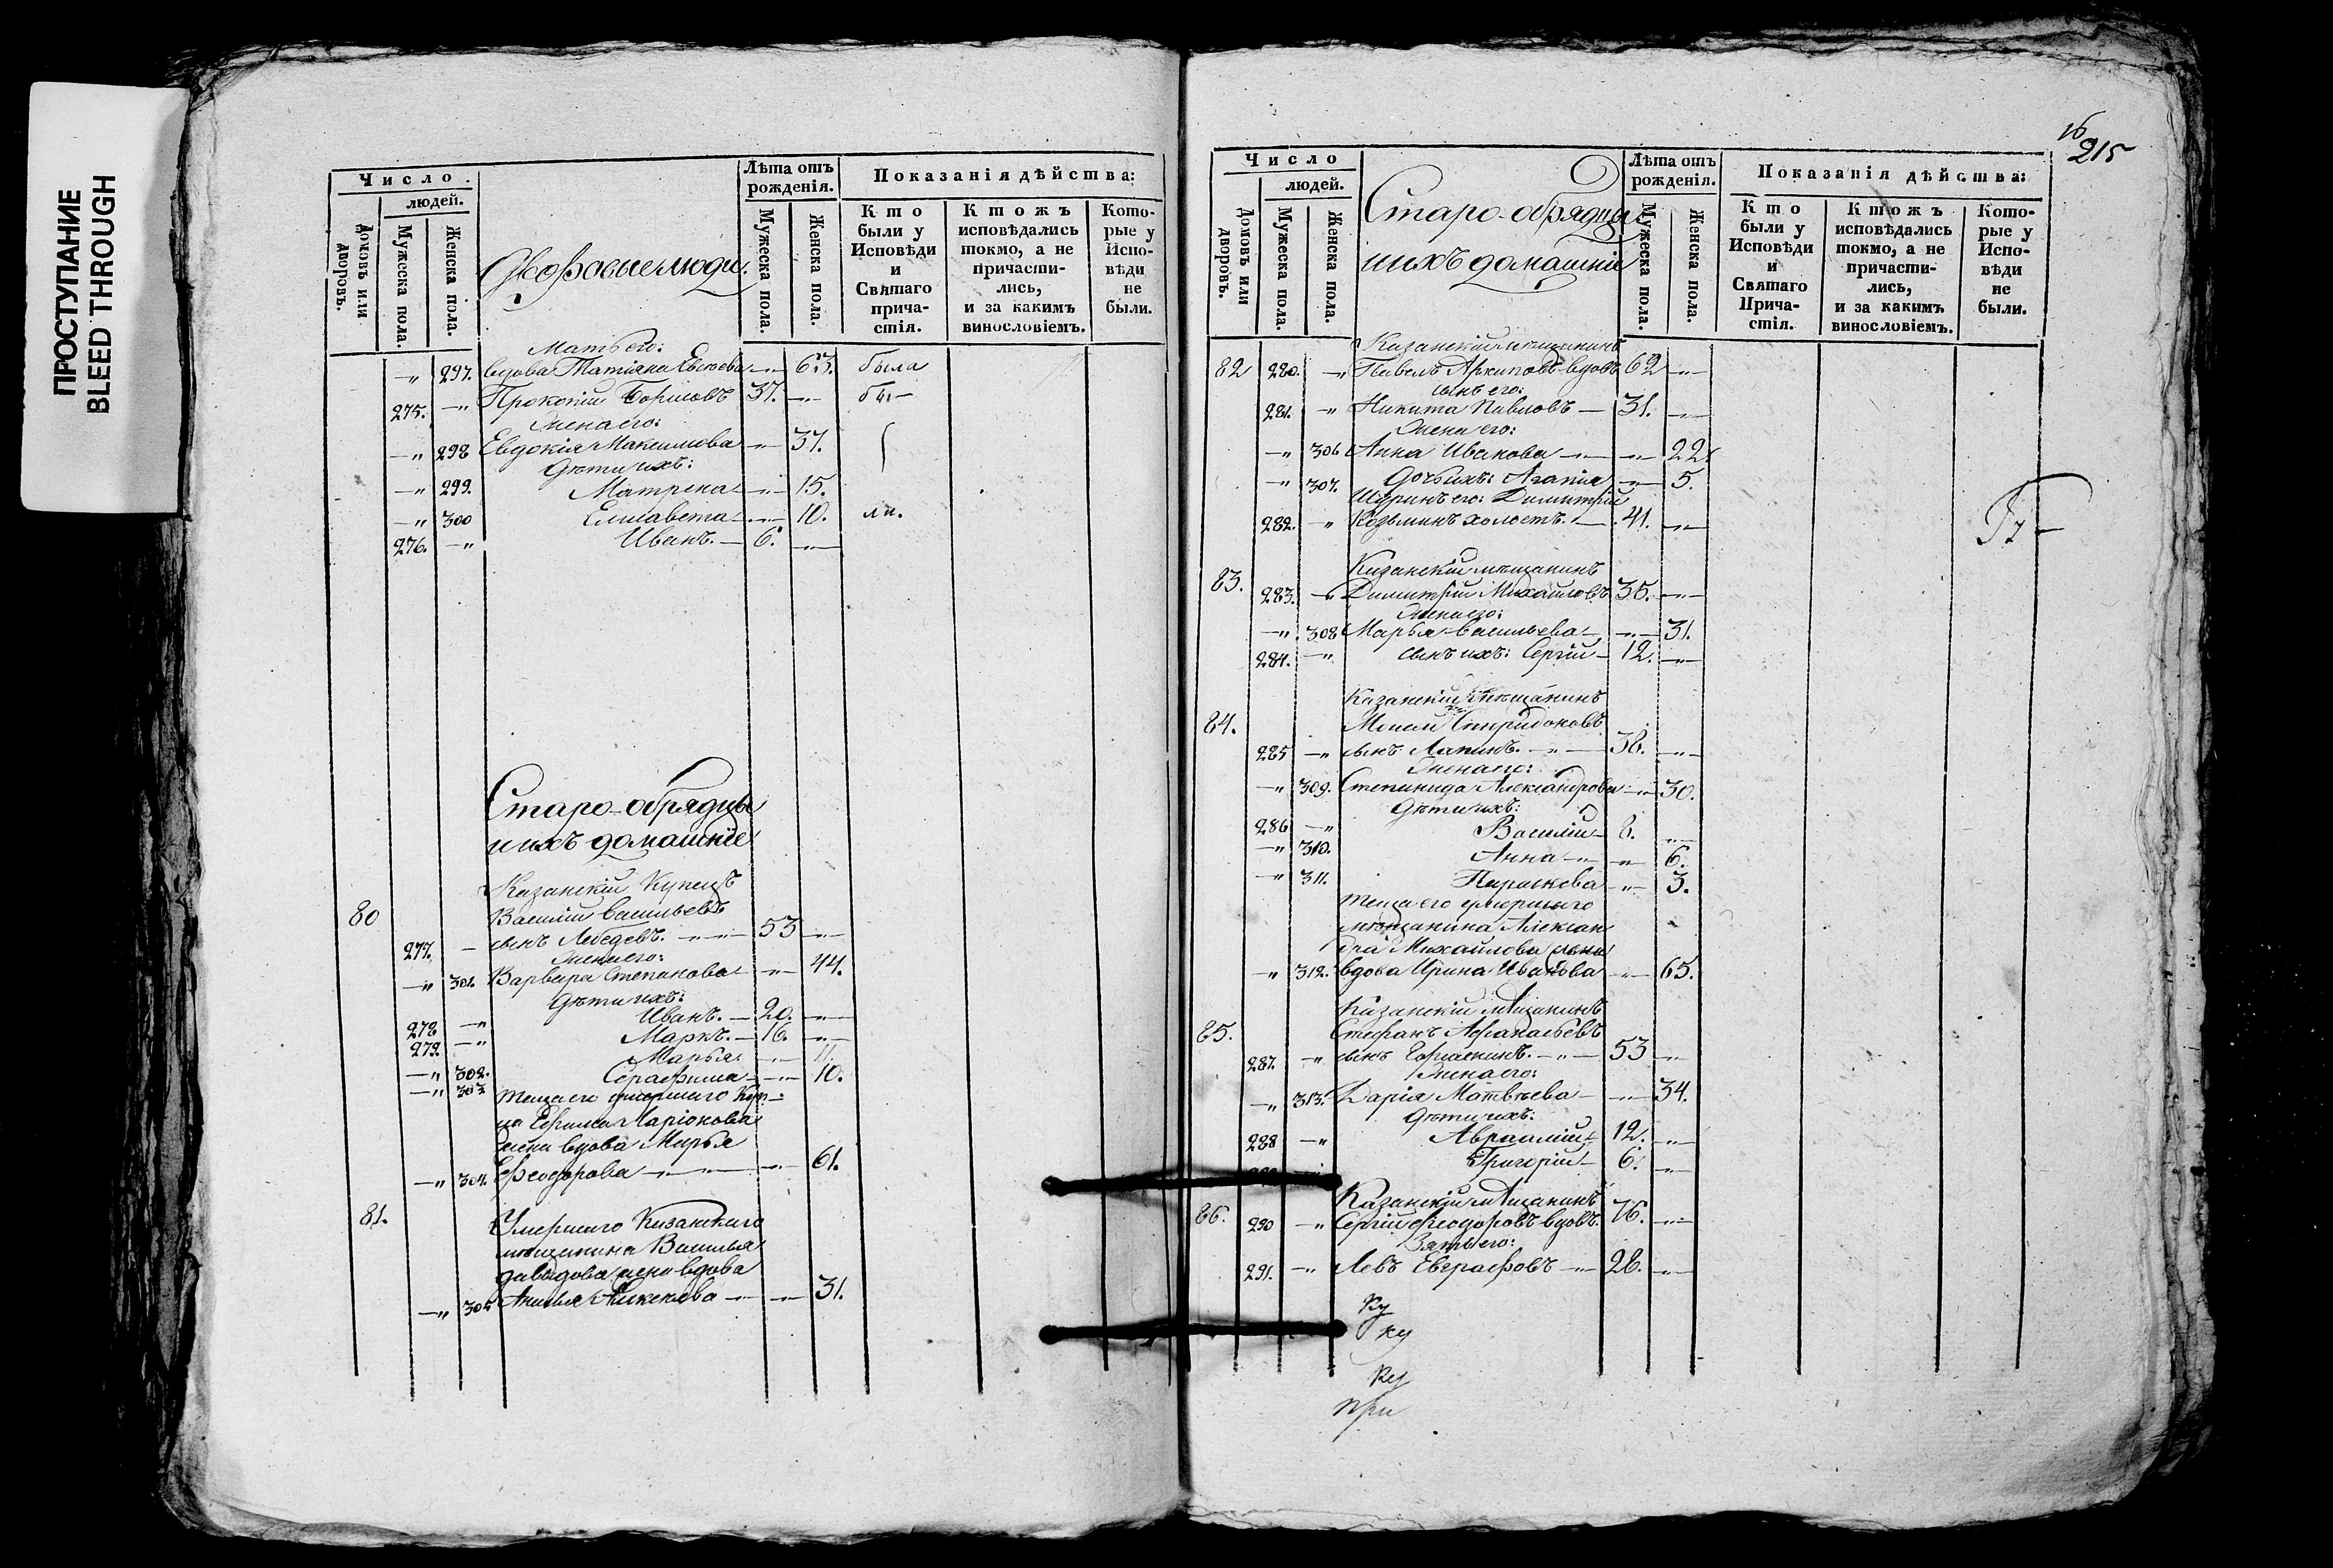 ПРОСТУПАНИЕ
BLEED THROUGH
Число.
людей.
Домовъ или дворовъ.
Мужеска пола.
Женска пола.
Дворовые люди.
Лѣта отъ рожденія.
Мужеска пола.
Женска пола.
Показанія дѣйства:
Кто были у Исповѣди и Святаго причастія.
Ктожъ исповѣдались токмо, а не причастились, и за какимъ винословіемъ.
Которые у Исповѣди не были.
Мать его:
—„ 297. вдова Татіяна —„— 63. была
275. —„ Прокопій Борисовъ 37. —„— бы—
Жена его:
—„ 298 Евдокія Максимова —„— 37.
Дѣти ихъ:
—„ 299. Матрена —„— 15.
—„ 300 Елисавета —„— 10. ли.
276. —„ Иванъ. — 6. —„—
Старо-обрядцы
и ихъ домашніе
Казанскій Купецъ
80 Василій Васильевъ
277. — сынъ Лебедевъ. —„— 53 —„—
Жена его:
—„ 301. Варвара Степанова —„— 44.
Дѣти ихъ:
278 —„ Иванъ. — 20. —„—
279. —„ Маркъ. — 16. —„—
—„ 302. Марья —„— 11.
—„ 303 Серафима —„— 10.
теща его умершаго Куп-
ца Ефима Ларіонова
жена вдова Марья
—„ 304. Ѳеодорова —„— 61.
81. Умершаго Казанскаго
мѣщанина Василья
Давыдова жена вдова
—„ 305 —„— 31.
16
215
Число
людей.
Домовъ или дворовъ.
Мужеска пола.
Женска пола.
Старо-обрядцы
и ихъ домашніе
Лѣта отъ рожденія.
Мужеска пола.
Женска пола.
Показанія дѣйства:
Кто были у Исповѣди и Святаго Причастія.
Ктожъ исповѣдались токмо, а не причастились, и за какимъ винословіемъ.
Которые у Исповѣди не были.
Казанскій мѣщанинъ
82 280. —„ Павелъ Архиповъ вдовъ 62 —„—
сынъ его:
281. —„ Никита Павловъ — 31. —„—
Жена его:
—„ 306 Анна Иванова —„— 22.
—„ 307. Дочь ихъ: Агапія —„— 5.
Шуринъ его: Димитрій
282. —„ Козьминъ холостъ. — 41. —„—
Казанскій мѣщанинъ
83. 283. —„ Димитрій Михайловъ 35. —„—
Жена его:
—„ 308 Марья Васильева —„— 31.
284. —„ сынъ ихъ: Сергій — 12. —„—
Казанскій мѣщанинъ
84. Моисей Спиридоновъ
285 —„ сынъ Лапинъ. —„— 38. —„—
Жена его:
—„ 309. Степанида Александрова —„— 30.
Дѣти ихъ:
286 —„ Василій — 8. —„—
—„ 310. Анна —„— 6.
—„ 311. Параскева —„— 3.
теща его умершаго
мѣщанина Алексан
дра Михайлова жена
—„ 312. вдова Ирина Иванова —„— 65.
Казанскій мѣщанинъ
85. Стефанъ Афанасьевъ
287. —„ сынъ —„— 53 —„—
Жена его:
—„ 313. Дарія Матвѣева —„— 34.
Дѣти ихъ:
288 —„ Авраамій — 12. —„—
Григорій — 6. —„—
Казанскій мѣщанинъ
86. 290 —„ Сергій Ѳеодоровъ вдовъ. 76. —„—
Зять его:
291. —„ Левъ Евграфовъ —„— 28. —„—
Ку
ку
Ку
При